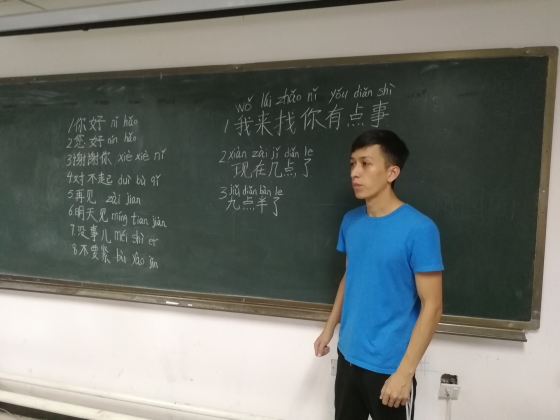 1你好 nǐ hǎo
2您好 nín hǎo
3谢谢你 xiè xiè nǐ
4对不起 duì bù qǐ
5再见 zài jiàn
6明天见 míng tiān jiàn
7没事儿 méi shì er
8不要紧 bù yào jǐn
wǒ lái zhǎo nǐ yǒu diǎn shì
1我来找你有点事
2 xiàn zài jǐ diǎn le
现在几点了
3 jiǔ diǎn bàn le
九点半了